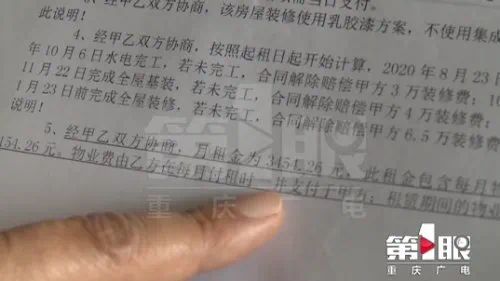 经甲乙双方协商,该房屋装修使用乳胶漆方案,不使用集成
此说明!
4、经甲乙双方协商,按照起租日起开始计算,2020年8月23日
年10月6日水电完工,若未完工,合同解除赔偿甲方3万装修费;
11月22日完成全屋基装,若未完工,合同解除赔偿甲方4万装修
1月23日前完成全屋装修,若未完工,合同解除赔偿甲方6.5万
说明!
5、经甲乙双方协商:月租金为3454.26元,此租金包含每月物
154.26元。物业费由乙方在每月付租时一并支付于甲方;租赁期间的物业
第1眼
重庆广电
第1眼
重庆广电